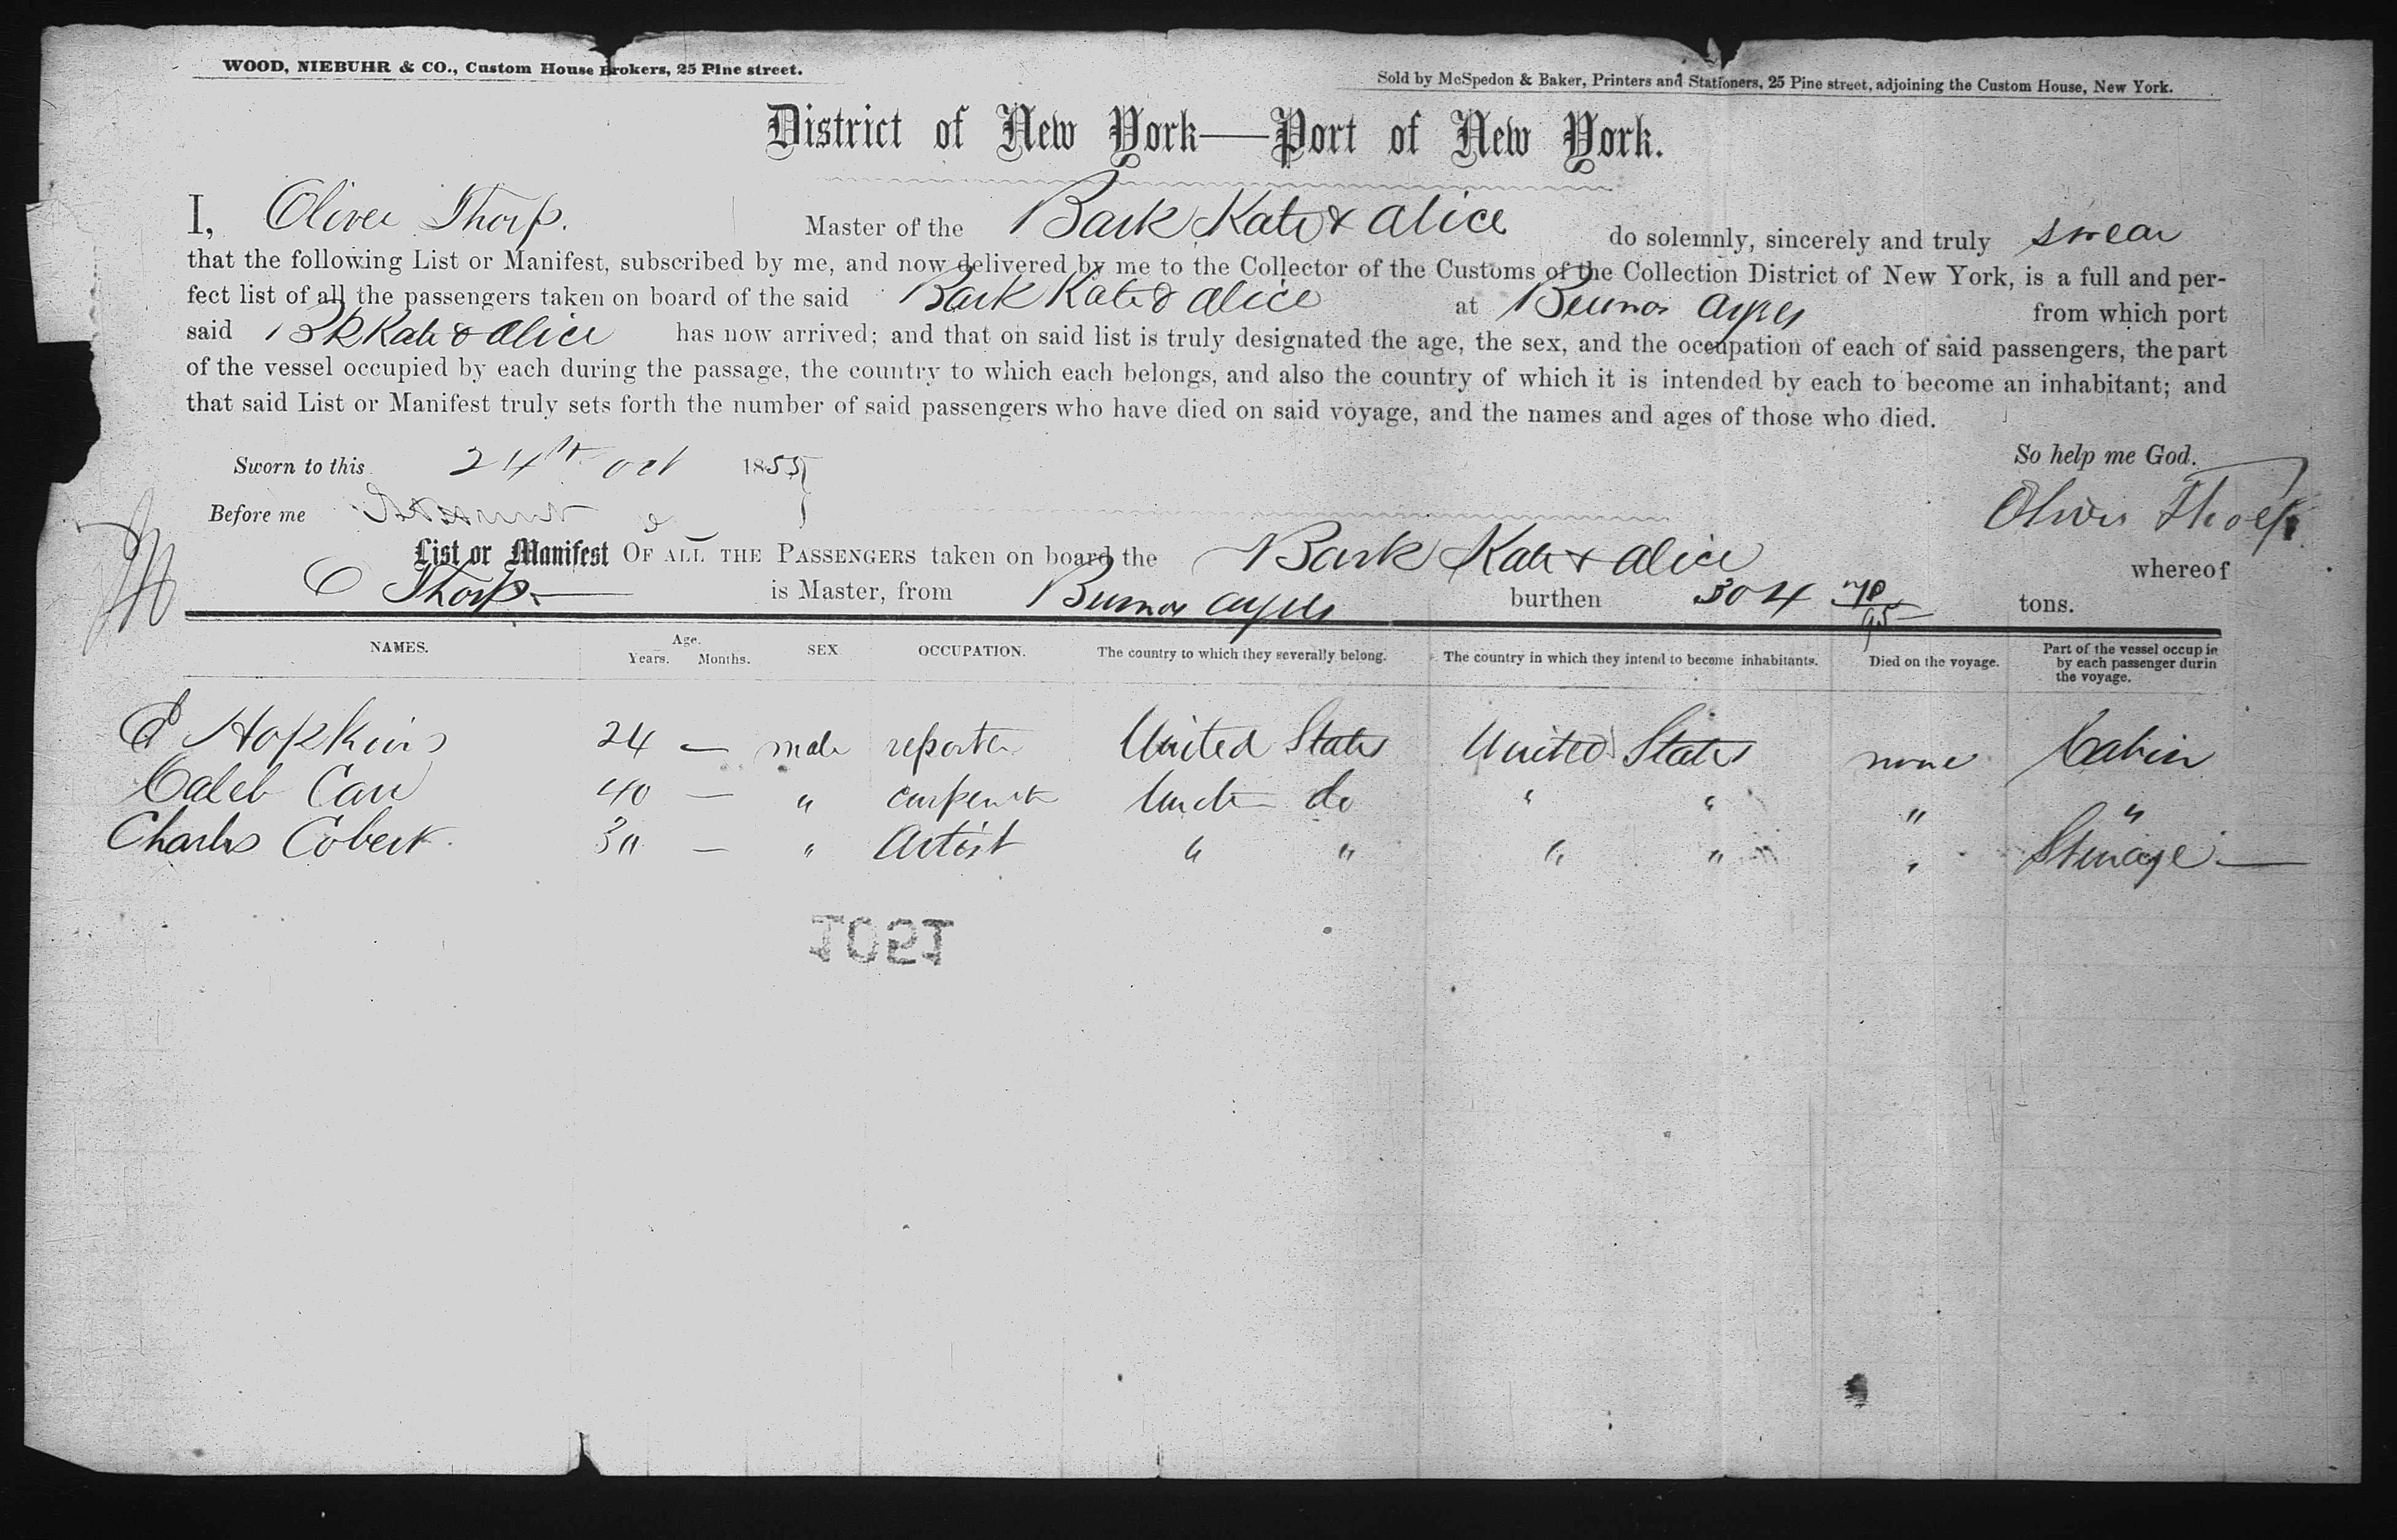 WOOD, NIEBUHR & CO., Custom House Brokers, 25 Pine street.
Sold by McSpedon & Baker, Printers and Stationers, 25 Pine street, adjoining the Custom House, New York.
District of New York—Port of New York.
I, Oliver Thorp. Master of the Bark Kate & Alice do solemnly, sincerely and truly swear
that the following List or Manifest, subscribed by me, and now delivered by me to the Collector of the Customs of the Collection District of New York, is a full and per-
fect list of all the passengers taken on board of the said Bark Kate & Alice at Buenos Ayres from which port
said Bk Kate & Alice has now arrived; and that on said list is truly designated the age, the sex, and the occupation of each of said passengers, the part
of the vessel occupied by each during the passage, the country to which each belongs, and also the country of which it is intended by each to become an inhabitant; and
that said List or Manifest truly sets forth the number of said passengers who have died on said voyage, and the names and ages of those who died.
Sworn to this 24th Oct 1855 So help me God.
Before me Oliver Thorp
List or Manifest OF ALL THE PASSENGERS taken on board the Bark Kate & Alice whereof
O Thorp — is Master, from Buenos Ayres burthen 304 78/95 tons.
NAMES. Age. Years. Months. SEX OCCUPATION. The country to which they severally belong. The country in which they intend to become inhabitants. Died on the voyage. Part of the vessel occupie by each passenger durin the voyage.
E Hopkins 24 — male reporter United States United States none Cabin
Caleb Carr 40 — " carpenter do " " " "
Charles Cobert. 30 — " Artist " " " " " Steerage —
1021